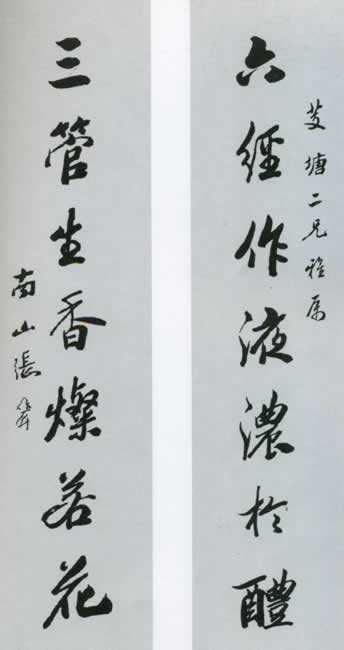 芰塘二兄雅属
六經作液濃於醴
三管生香燦若花
南山張維屏